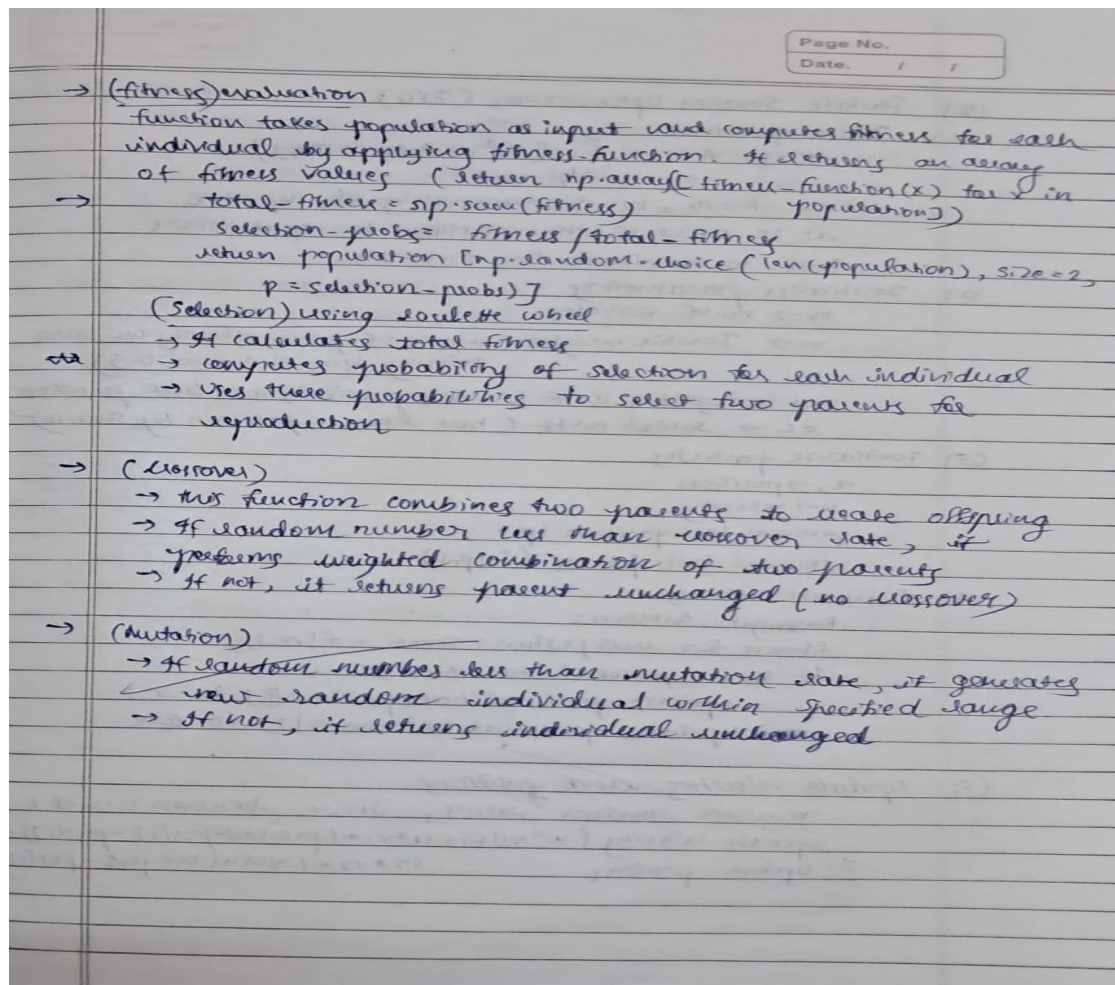 Page No.
Date. / /
→ (fitness) evaluation
function takes population as input and computes fitness for each
individual by applying fitness-function. It returns an array
of fitness values (return np.array([fitness-function(x) for x in
population])
→ total-fitness = np.sum(fitness)
selection-probs = fitness / total-fitness
return population [np.random.choice (len(population), size=2,
p = selection-probs)]
(Selection) using roulette wheel
→ It calculates total fitness
→ computes probability of selection for each individual
→ Uses these probabilities to select two parents for
reproduction
→ (Crossover)
→ this function combines two parents to create offspring
→ If random number less than crossover rate, it
performs weighted combination of two parents
→ If not, it returns parent unchanged (no crossover)
→ (Mutation)
→ If random number less than mutation rate, it generates
new random individual within specified range
→ If not, it returns individual unchanged